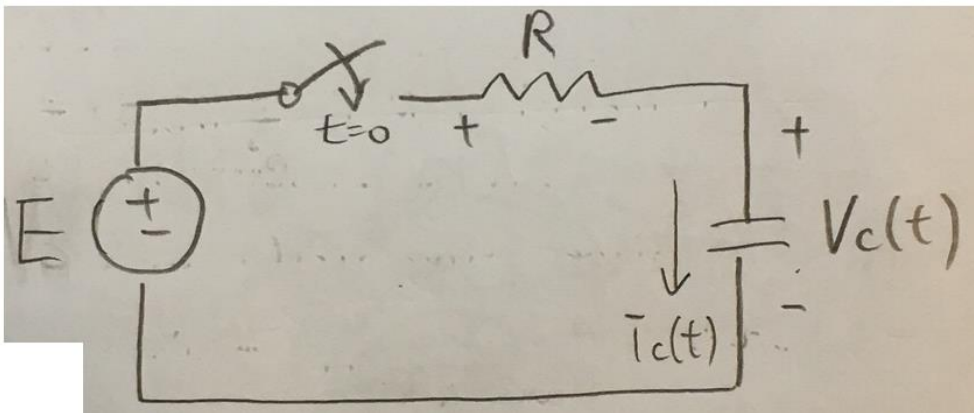 R
t=0
+ -
+
E
+
-
Vc(t)
-
ic(t)